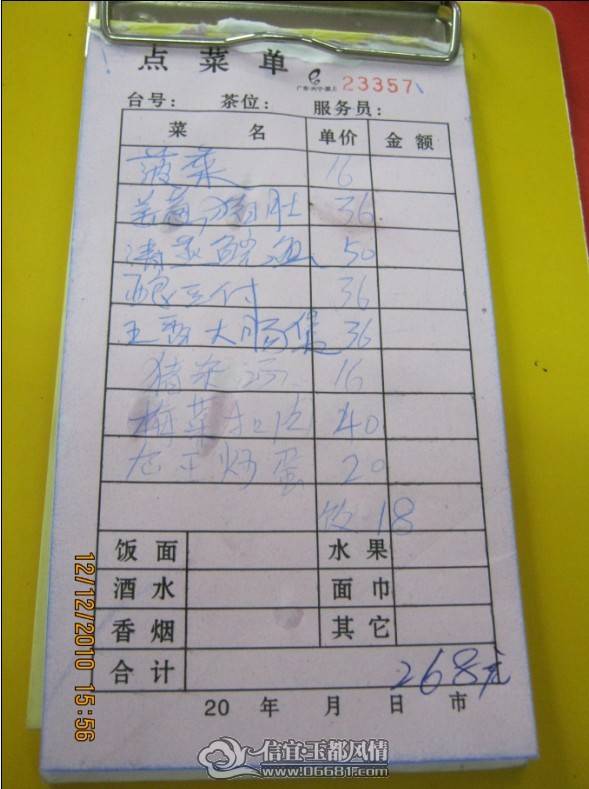 点菜单
23357
台号： 茶位： 服务员：
菜 名 单价 金额
菠菜 16
36
清蒸鲩鱼 50
酿豆付 36
五香大肠煲 36
猪杂汤 16
梅菜扣肉 40
炒蛋 20
饭 18
饭面 水果
酒水 面巾
香烟 其它
合计 268元
20 年 月 日 市
12/12/2010 15:56
信宜玉都风情
www.06681.com